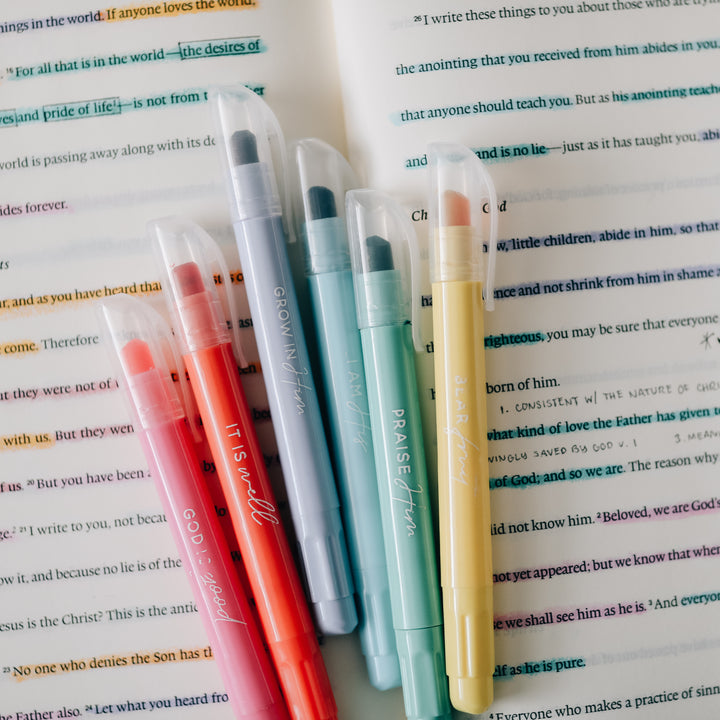 things in the world. If anyone loves the world,
¹⁶ For all that is in the world—the desires of
and pride of life—is not from
world is passing away along with its
forever.
and as you have heard that
come. Therefore
they were not of
with us. But they were
of us. ²⁰ But you have been
²¹ I write to you, not
it, and because no lie is of the
is the Christ? This is the
²³ No one who denies the Son has
the Father also. ²⁴ Let what you heard from
²⁶ I write these things to you about those who are
the anointing that you received from him abides in you,
that anyone should teach you. But as his anointing
and is no lie—just as it has taught you,
God
little children, abide in him, so that
and not shrink from him in shame
righteous, you may be sure that everyone
born of him.
1. CONSISTENT W/ THE NATURE OF
what kind of love the Father has given
SAVED BY GOD V. 1 3.
of God; and so we are. The reason why
did not know him. ² Beloved, we are God's
not yet appeared; but we know that when
we shall see him as he is. ³ And
as he is pure.
⁴ Everyone who makes a practice of
GOD IS good
IT IS well
GROW IN Him
I AM His
PRAISE Him
BEAR fruit